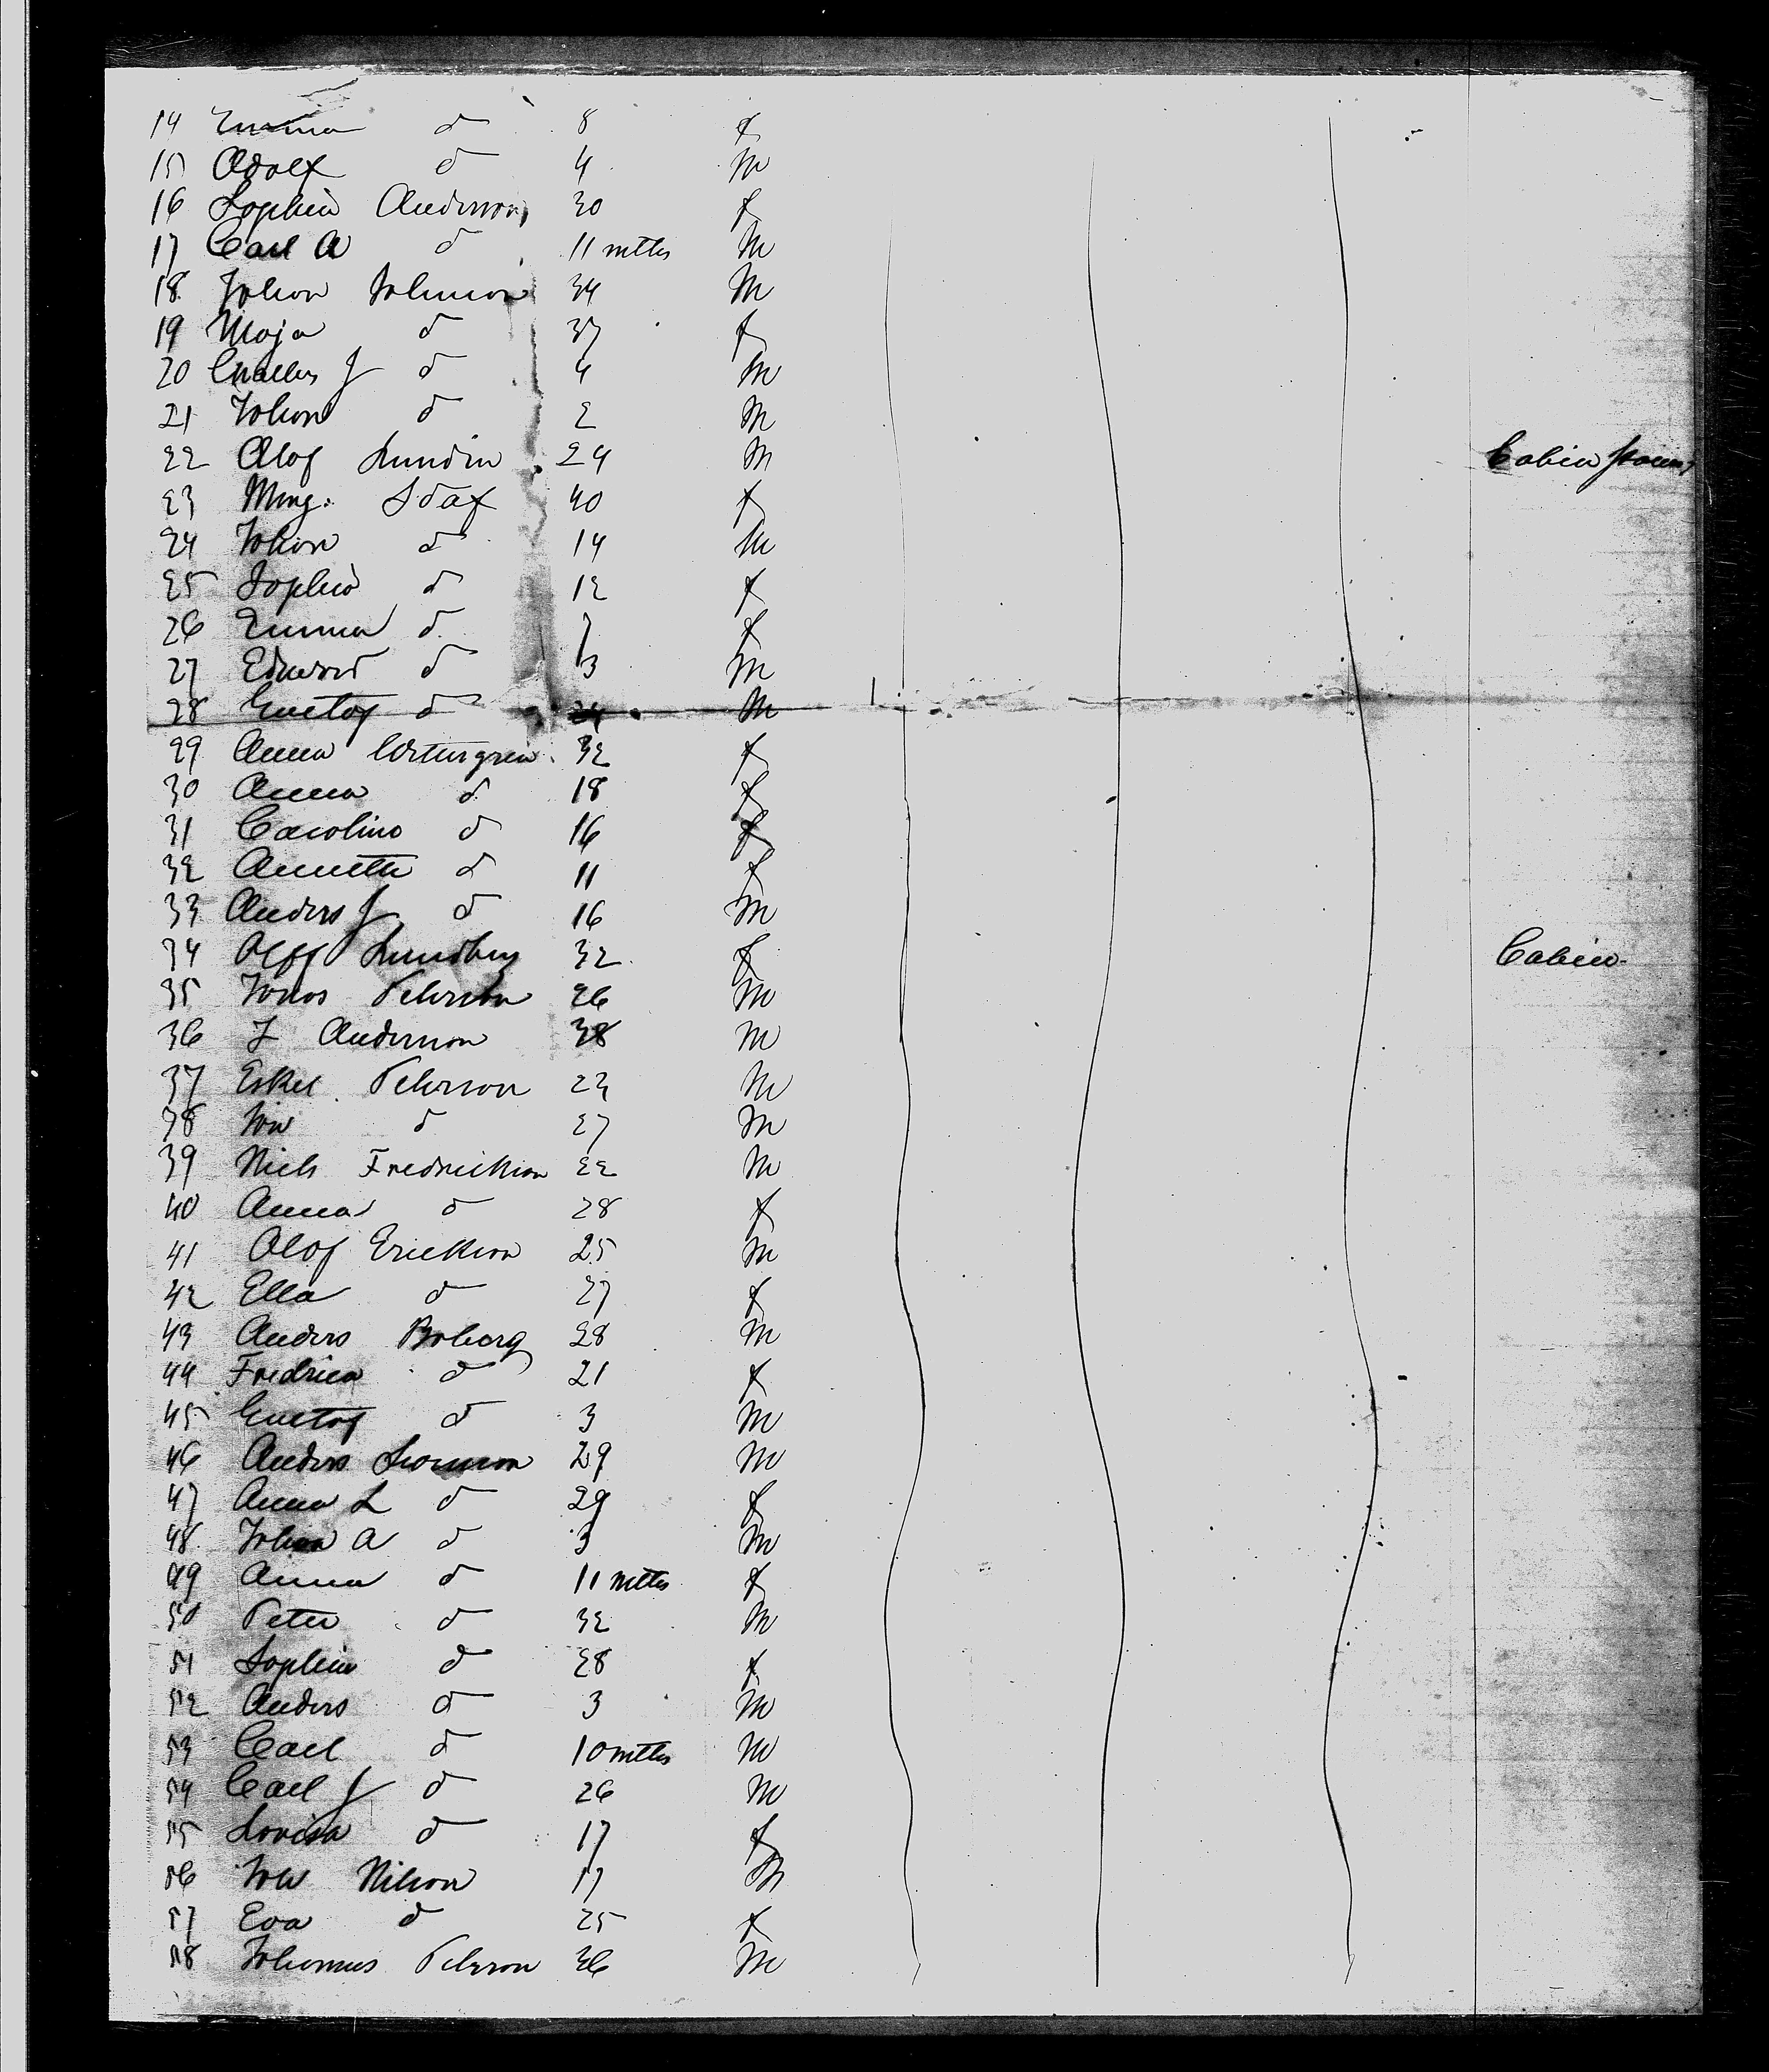 14 Emma d 8 f
15 Adolf d 4 m
16 Sophia Anderson 30 f
17 Carl A d 11 mths m
18 Johan Johnson 34 m
19 Maja d 37 f
20 Charles J d 4 m
21 Johan d 2 m
22 Olof Lundin 24 m Cabin
23 Mmg: 40 f
24 Johan d 14 m
25 Sophia d 12 f
26 Emma d 7 f
27 Edward d 3 m
28 Gustof d 24 m
29 Anna 32 f
30 Anna d 18 f
31 Carolina d 16 f
32 Annetta d 11 f
33 Anders J d 16 m
34 Lundberg 32 f Cabin
35 Jonas Peterson 26 m
36 J Anderson 38 m
37 Eskel Peterson 23 m
38 d 27 m
39 Niels Fredrickson 22 m
40 Anna d 28 f
41 Olof Erickson 25 m
42 Ella d 27 f
43 Anders Boberg 28 m
44 Fredrica d 21 f
45 Gustof d 3 m
46 Anders 29 m
47 Anna L d 29 f
48 Johan A d 3 m
49 Anna d 11 mths f
50 Peter d 32 m
51 Sophia d 28 f
52 Anders d 3 m
53 Carl d 10 mths m
54 Carl J d 26 m
55 Lovisa d 17 f
56 Nilson 17 m
57 Eva d 25 f
58 Johannes Peterson 36 m